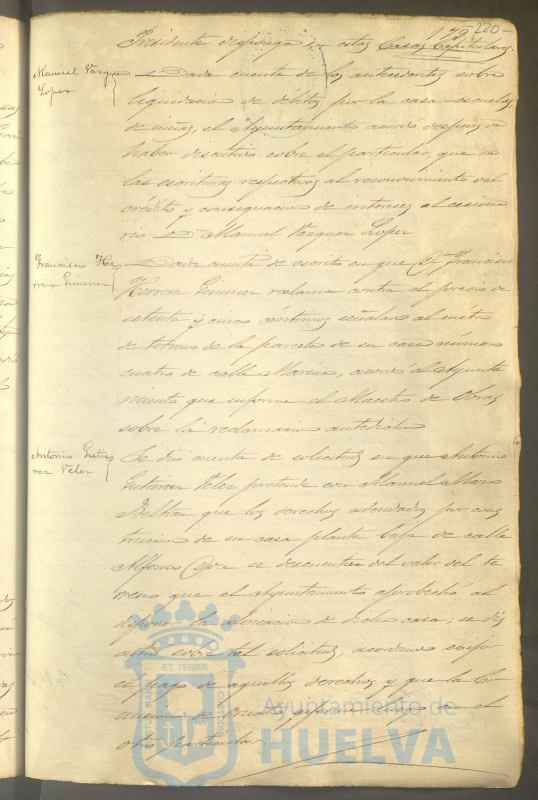 129 220-
Presidente disponga en estas Casas Capitulares.
Manuel Vazquez
Lopez
Dada cuenta de los antecedentes sobre
liquidacion de débitos por la casa-escuela
de niñas, el Ayuntamiento acordó despues de
haber discutido sobre el particular, que se
las escrituras respectivas al reconocimiento del
crédito y consignacion de intereses al cesiona
rio D. Manuel Vazquez Lopez
Francisco He
rrera Gimenez
Dada cuenta de escrito en que Francisco
Herrera Gimenez reclama contra el precio de
setenta y cinco centimos señalado al metro
de terreno de la parcela de su casa número
cuatro de calle Marina, acordó el Ayunta
miento que informe el Maestro de Obras
sobre la reclamacion antedicha
Antonio Gutie
rrez Velez
Se dió cuenta de solicitud en que Antonio
Gutierrez Velez pretende con Manuel Mora
Beltran que los derechos adeudados por cons
truccion de su casa planta baja de calle
Alfonso Doce se descuenten del valor del te
rreno que el Ayuntamiento aprobechó al
disponer la alineacion de dicha casa; se dis
cutió sobre tal solicitud, acordose exigir
el pago de aquellos derechos y que la Co
mision de informe en el
otro particular.
ET TERRÆ
Ayuntamiento de
HUELVA